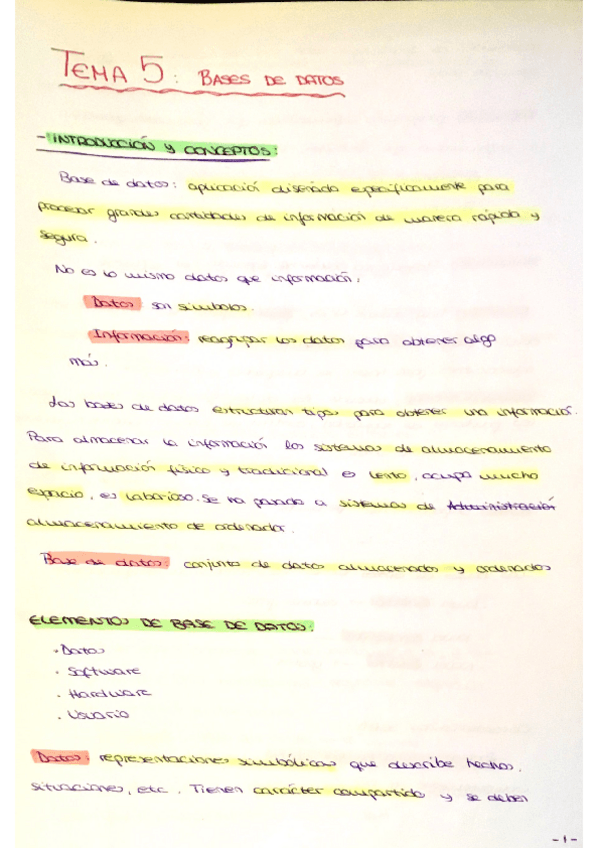 TEMA 5: BASES DE DATOS
- INTRODUCCIÓN Y CONCEPTOS:
Base de datos: aplicación diseñada específicamente para
procesar grandes cantidades de información de manera rápida y
segura.
No es lo mismo datos que información:
Datos son símbolos.
Información: reagrupar los datos para obtener algo
más.
Las bases de datos estructuran tipos para obtener una información.
Para almacenar la información los sistemas de almacenamiento
de información físico y tradicional es lento, ocupa mucho
espacio, es laborioso. Se ha pasado a sistemas de Administración
almacenamiento de ordenador.
Base de datos: conjunto de datos almacenados y ordenados
ELEMENTOS DE BASE DE DATOS:
· Datos
· Software
· Hardware
· Usuario
Datos: representaciones simbólicas que describe hechos,
situaciones, etc. Tienen carácter compartido y se deben
-1-